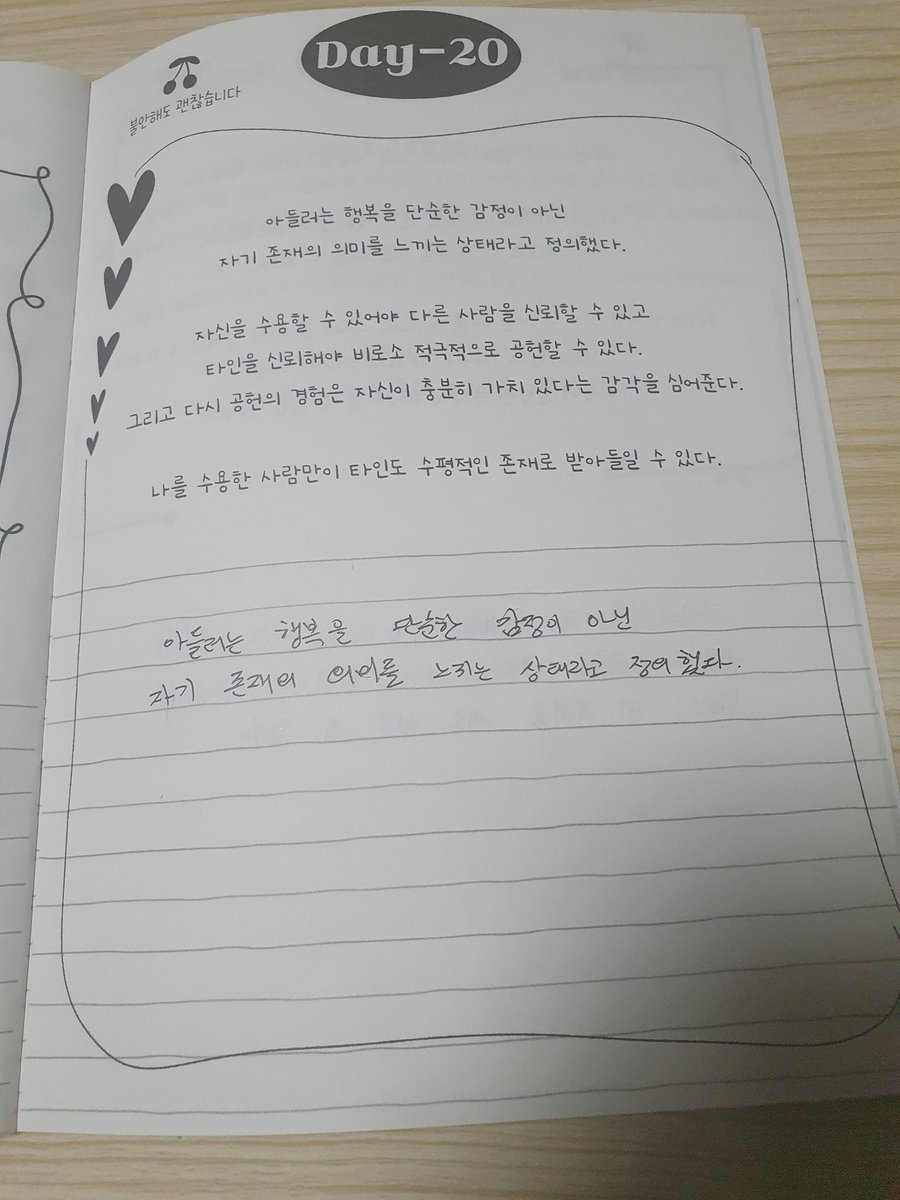 Day-20
불안해도 괜찮습니다
아들러는 행복을 단순한 감정이 아닌
자기 존재의 의미를 느끼는 상태라고 정의했다.
자신을 수용할 수 있어야 다른 사람을 신뢰할 수 있고
타인을 신뢰해야 비로소 적극적으로 공헌할 수 있다.
그리고 다시 공헌의 경험은 자신이 충분히 가치 있다는 감각을 심어준다.
나를 수용한 사람만이 타인도 수평적인 존재로 받아들일 수 있다.
아들러는 행복을 단순한 감정이 아닌
자기 존재의 의미를 느끼는 상태라고 정의했다.